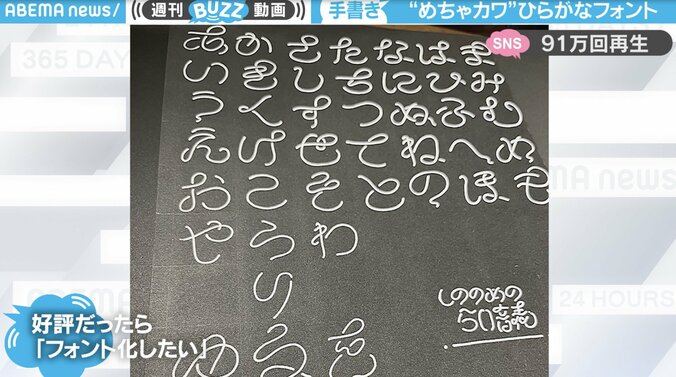 ABEMA news/
週刊 BUZZ 動画
手書き “めちゃカワ”ひらがなフォント
SNS 91万回再生
365 DAY
あかさたなはま
いきしちにひみ
うくすつぬふむ
えけせてねへめ
おこそとのほも
やらわ
り
ゆるを
しののめの
50音表
MA news/
24 HOURS
好評だったら
「フォント化したい」